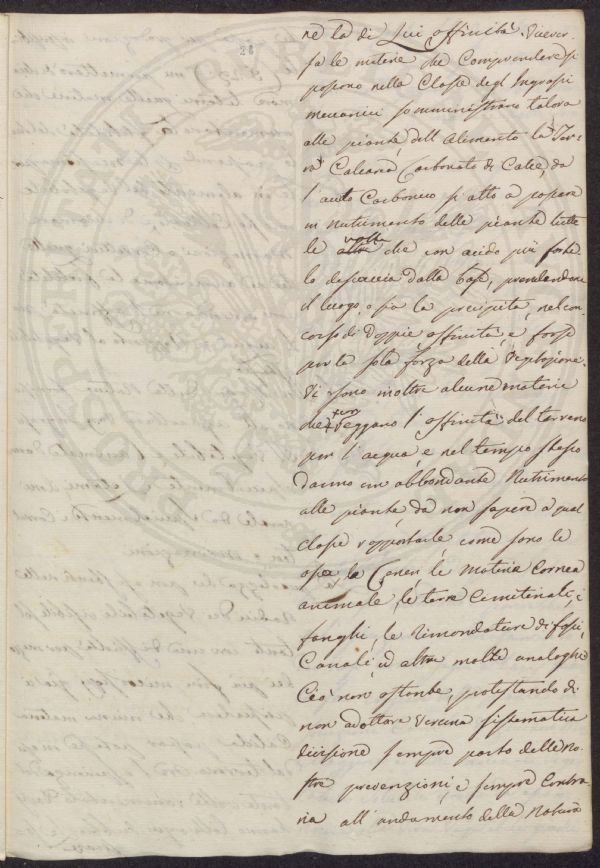 28
ne la di Lui affinità. Vicever-
sa le materie che comprendere si
possono nella Classe degl'Ingrassi
meccanici somministrano talora
alle piante dell'Alimento la Ter-
ra Calcarea, Carbonato di Calce, da
l'acido Carbonico si atto a passare
in nutrimento delle piante tutte
le volte che con acido più forte
lo discaccia dalla base, prendendone
il luogo, o sia la precipita, nel con-
corso di doppie affinità, e forse
per la sola forza della Vegetazione.
Vi sono inoltre alcune materie
che reggano l'affinità del terreno
per l'acqua, e nel tempo stesso
danno un abbondante Nutrimento
alle piante da non sapere a qual
classe rapportarle come sono le
ossa la Ceneri, le Materia Cornea
animale, le terre Cimiteriali, i
fanghi, le Rimondature di fossi,
Canali, ed altre molte analoghe
Ciò non ostante, protestando di
non adottare veruna sistematica
divisione sempre parto delle no-
stre prevenzioni, e sempre Contra-
ria all'andamento della Natura